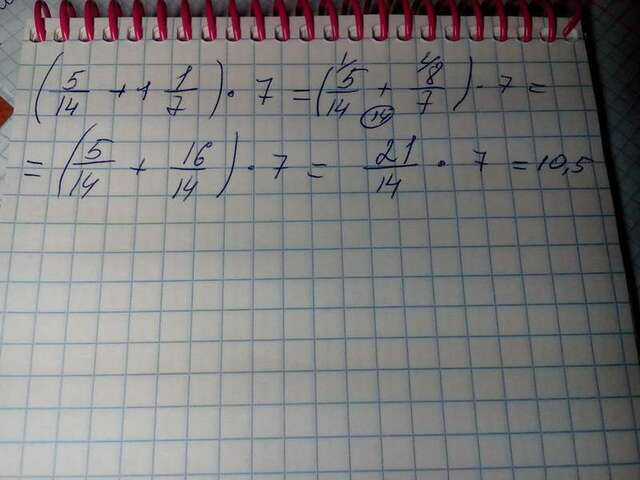 (5/14 + 1 1/7) · 7 = (5/14 + 8/7) · 7 =
= (5/14 + 16/14) · 7 = 21/14 · 7 = 10,5